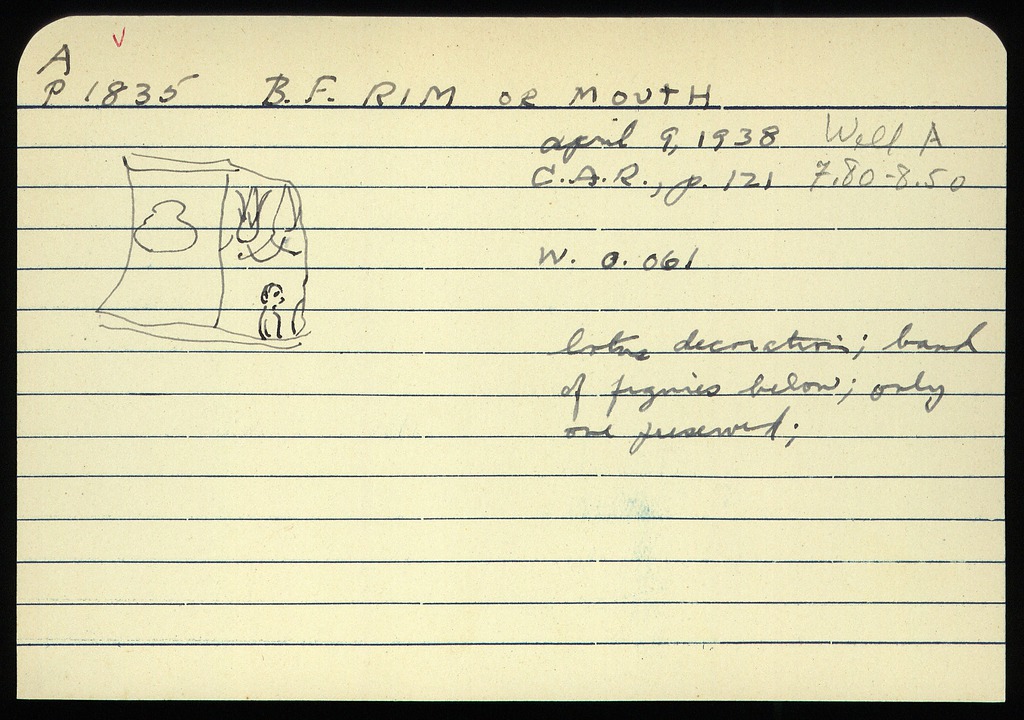 A
P 1835 B.F. RIM OR MOUTH
april 9, 1938 Well A
C.A.R., p. 121 7.80-8.50
W. 0.061
lotus decoration; band
of figures below; only
one preserved;